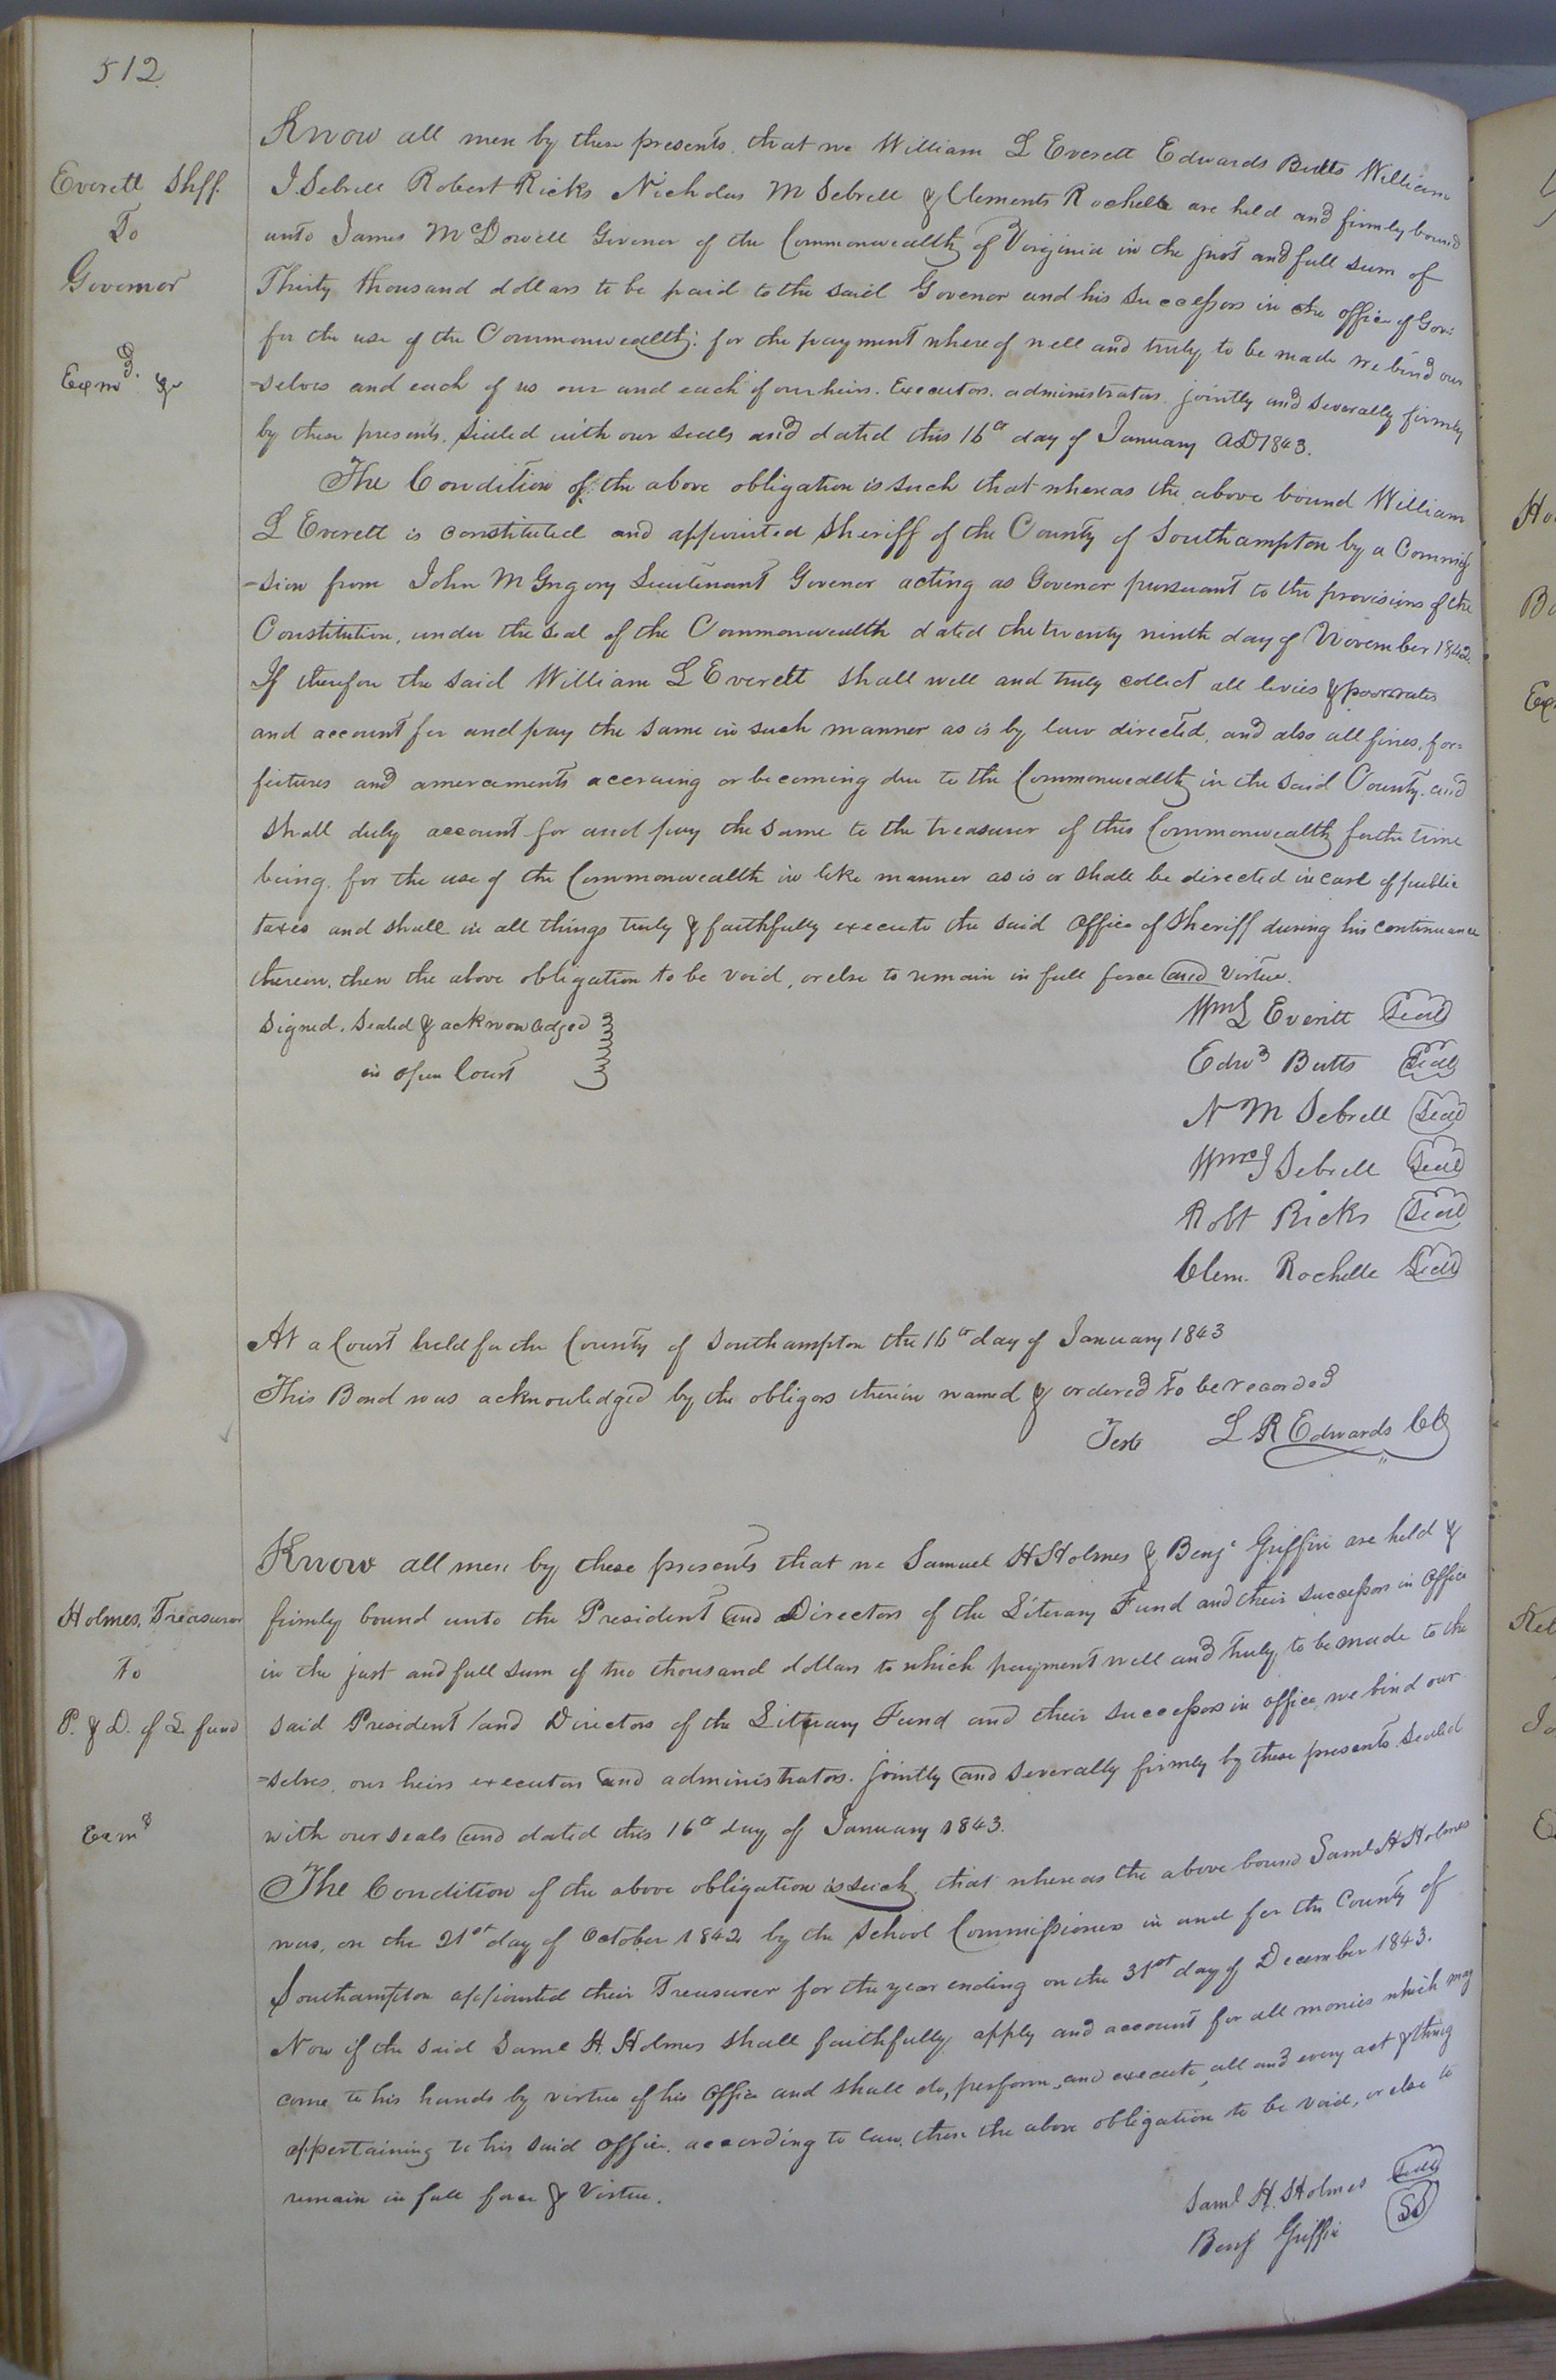 512.
Everett Shff.
To
Governor
Exmd. &
Know all men by these presents that we William L Everett Edwards Butts William
J. Sebrell Robert Ricks Nicholas M Sebrell & Clements Rochelle are held and firmly bound
unto James McDowell Govenor of the Commonwealth of Virginia in the just and full sum of
Thirty thousand dollars to be paid to the said Govenor and his successors in the office of Gov:
for the use of the Commonwealth: for the payment whereof well and truly to be made we bind our
-selves and each of us our and each of our heirs. Executors. administrators. jointly and severally firmly
by these presents. Sealed with our seals and dated this 16th day of January AD 1843.
The Condition of the above obligation is such that whereas the above bound William
L Everett is constituted and appointed Sheriff of the County of Southampton by a Commis
-sion from John M Gregory Lieutenant Govenor acting as Govenor pursuant to the provisions of the
Constitution, under the seal of the Commonwealth dated the twenty ninth day of November 1842.
If therefore the said William L Everett shall well and truly collect all levies & poor rates
and account for and pay the same in such manner as is by law directed, and also all fines, for=
feitures and amercements accruing or becoming due to the Commonwealth in the said County. and
shall duly account for and pay the same to the treasurer of this Commonwealth for the time
being. for the use of the Commonwealth in like manner as is or shall be directed in case of public
taxes and shall in all things truly & faithfully execute the said office of Sheriff during his continuance
therein, then the above obligation to be void, or else to remain in full force and virtue.
Signed. Sealed & acknowledged
in open Court
Wm L Everitt Seal
Edwd Butts Seal
N M Sebrell Seal
Wm J Sebrell Seal
Robt Ricks Seal
Clem. Rochelle Seal
At a Court held for the County of Southampton the 16th day of January 1843
This Bond was acknowledged by the obligors therein named & ordered to be recorded
Teste L R Edwards CC
Holmes, Treasurer
To
P. & D. of L. fund
Exmd
Know all men by these presents that we Samuel H Holmes & Benj. Griffin are held &
firmly bound unto the President and Directors of the Literary Fund and their successors in office
in the just and full sum of two thousand dollars to which payment well and truly to be made to the
said President and Directors of the Literary Fund and their successors in office, we bind our
=selves, our heirs executors and administrators. jointly and severally firmly by these presents. Sealed
with our seals and dated this 16th day of January 1843.
The Condition of the above obligation is such that whereas the above bound Saml H Holmes
was, on the 21st day of October 1842 by the School Commissioners in and for the County of
Southampton appointed their Treasurer for the year ending on the 31st day of December 1843.
Now if the said Saml H. Holmes shall faithfully apply and account for all monies which may
come to his hands by virtue of his office and shall do, perform, and execute, all and every act & thing
appertaining to his said office. according to law. then the above obligation to be void, or else to
remain in full force & Virtue.
Saml H. Holmes Seal
Benj Griffin SS